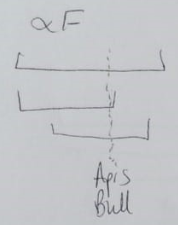 αF
Apis
Bull